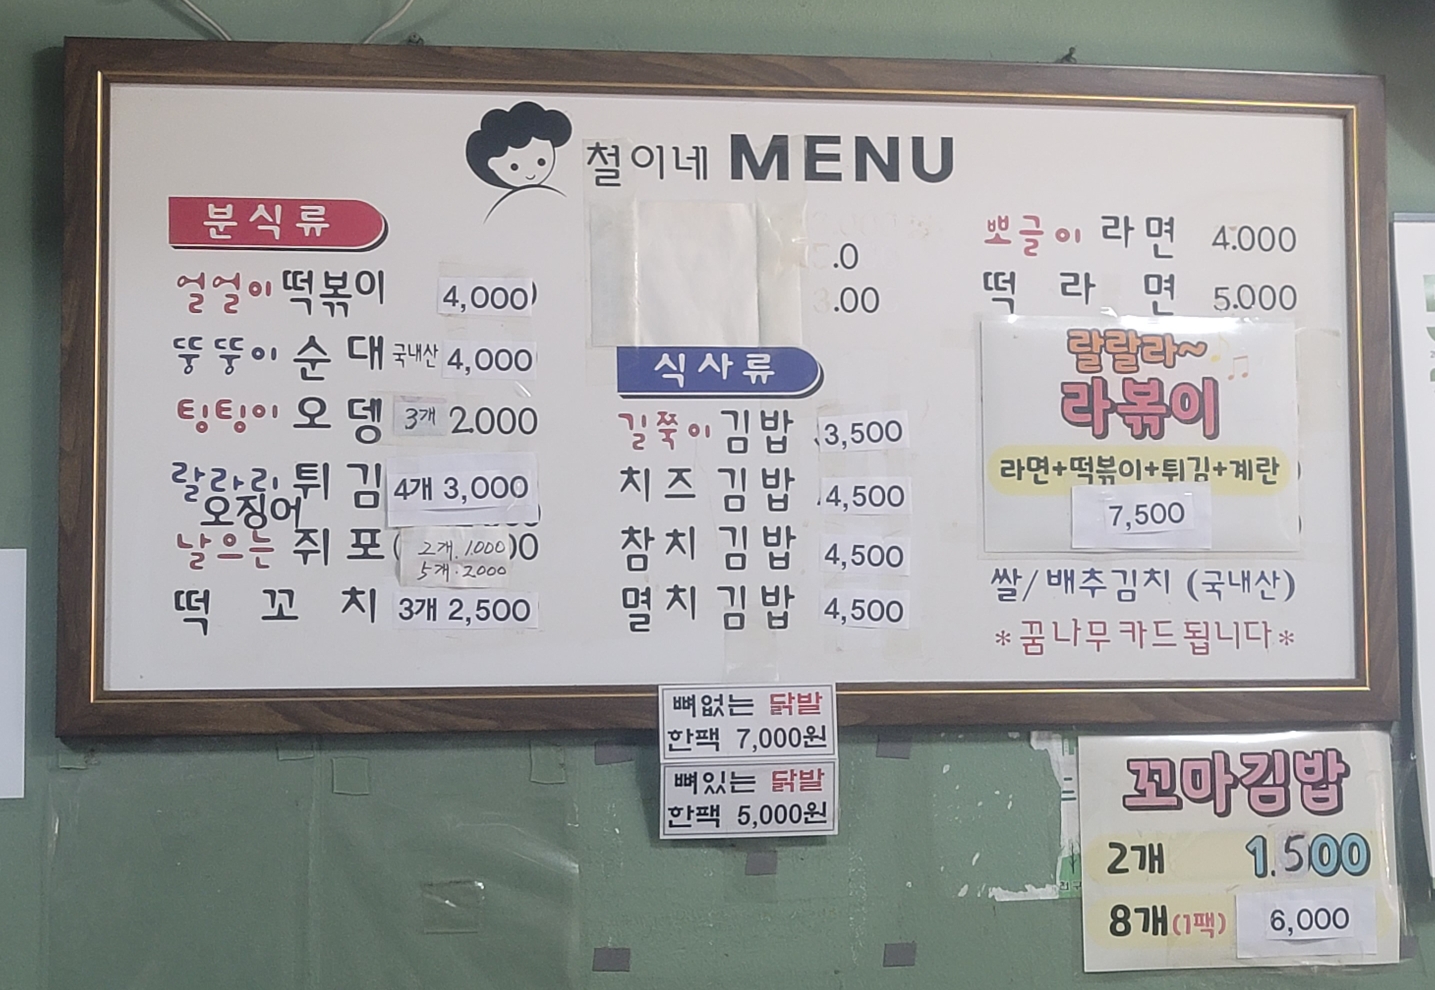 철이네 MENU
분식류
얼얼이 떡볶이 4,000
뚱뚱이 순대 국내산 4,000
팅팅이 오뎅 3개 2.000
랄라리 튀김 4개 3,000
오징어
날으는 쥐포 2개. 1.000
5개. 2000
떡꼬치 3개 2,500
.0
.00
식사류
길쭉이 김밥 3,500
치즈김밥 4,500
참치김밥 4,500
멸치김밥 4,500
뽀글이 라면 4.000
떡라면 5.000
랄랄라~
라볶이
라면+떡볶이+튀김+계란
7,500
쌀/배추김치 (국내산)
*꿈나무카드됩니다*
뼈없는 닭발
한팩 7,000원
뼈있는 닭발
한팩 5,000원
꼬마김밥
2개 1.500
8개(1팩) 6,000